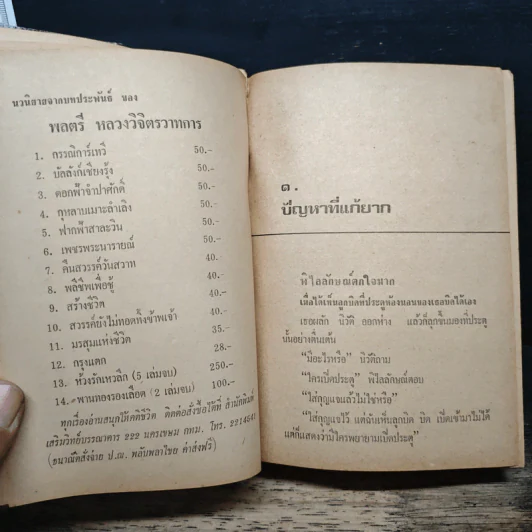 นวนิยายจากบทประพันธ์ ของ
พลตรี หลวงวิจิตรวาทการ
1. กรรณิการ์เทวี 50.-
2. บัลลังก์เชียงรุ้ง 50.-
3. ดอกฟ้าจำปาศักดิ์ 50.-
4. กุหลาบเมาะลำเลิง 50.-
5. ฟากฟ้าสาละวิน 50.-
6. เพชรพระนารายณ์ 50.-
7. คืนสวรรค์วันสวาท 40.-
8. พลีชีพเพื่อชู้ 40.-
9. สร้างชีวิต 40.-
10. สวรรค์ยังไม่ทอดทิ้งข้าพเจ้า 40.-
11. มรสุมแห่งชีวิต 35.-
12. กรุงแตก 28.-
13. ห้วงรักเหวลึก (5 เล่มจบ) 250.-
14. พานทองรองเลือด (2 เล่มจบ) 100.-
ทุกเรื่องอ่านสนุกให้คติชีวิต ติดต่อสั่งซื้อได้ที่ สำนักพิมพ์
เสริมวิทย์บรรณาคาร 222 นครเขษม กทม. โทร.
(ธนาณัติสั่งจ่าย ป.ณ. พลับพลาไชย ค่าส่งฟรี)
๓.
ปัญหาที่แก้ยาก
พิไลลักษณ์ตกใจมาก
เมื่อได้เห็นลูกบิดที่ประตูห้องนอนของเธอบิดได้เอง
เธอผลัก นิวัติ ออกห่าง แล้วก็ลุกขึ้นมองที่ประตู
นั้นอย่างตื่นเต้น
“มีอะไรหรือ” นิวัติถาม
“ใครเปิดประตู” พิไลลักษณ์ตอบ
“ใส่กุญแจแล้วไม่ใช่หรือ”
“ใส่กุญแจไว้ แต่ฉันเห็นลูกบิด บิด เปิดเข้ามาไม่ได้
แต่ก็แสดงว่ามีใครพยายามเปิดประตู”